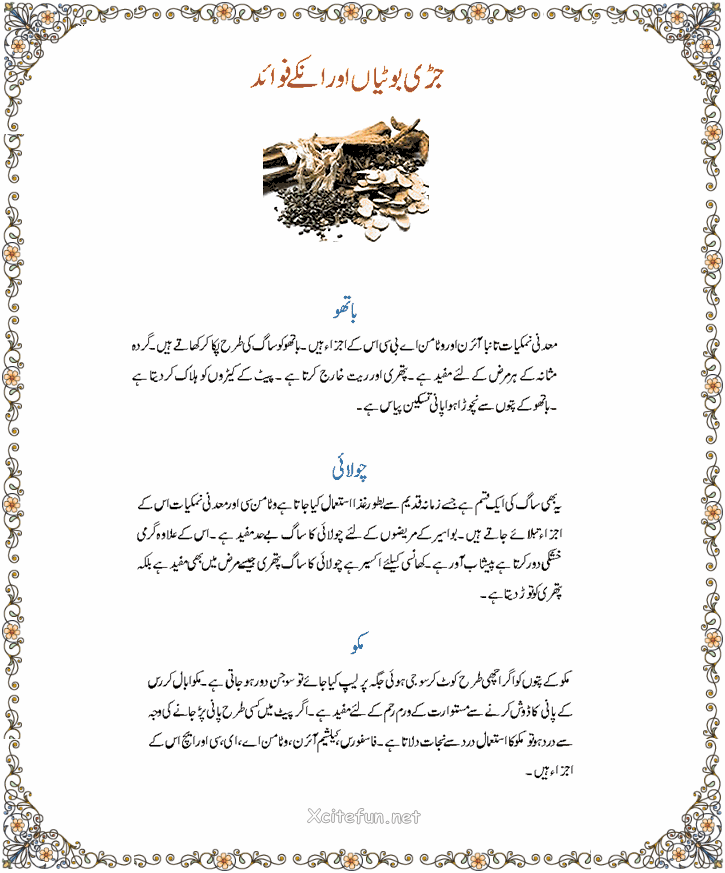 جڑی بوٹیاں اور انکے فوائد
باتھو
معدنی نمکیات تانبا آئرن اور وٹامن اے بی سی اس کے اجزاء ہیں ۔ باتھو کو ساگ کی طرح پکا کر کھاتے ہیں ۔ گردہ
مثانہ کے ہر مرض کے لئے مفید ہے ۔ پتھری اور ریت خارج کرتا ہے ۔ پیٹ کے کیڑوں کو ہلاک کر دیتا ہے
۔ باتھو کے پتوں سے نچوڑا ہوا پانی تسکین پیاس ہے ۔
چولائی
یہ بھی ساگ کی ایک قسم ہے جسے زمانہ قدیم سے بطور غذا استعمال کیا جاتا ہے وٹامن سی اور معدنی نمکیات اس کے
اجزاء بتلائے جاتے ہیں ۔ بواسیر کے مریضوں کے لئے چولائی کا ساگ بے حد مفید ہے ۔ اس کے علاوہ گرمی
خشکی دور کرتا ہے پیشاب آور ہے ۔ کھانسی کیلئے اکسیر ہے چولائی کا ساگ پتھری جیسے مرض میں بھی مفید ہے بلکہ
پتھری کو توڑ دیتا ہے ۔
مکو
مکو کے پتوں کو اگر اچھی طرح کوٹ کر سوجی ہوئی جگہ پر لیپ کیا جائے تو سوجن دور ہو جاتی ہے ۔ مکو ابال کر رس
کے پانی کا ڈوش کرنے سے مستوارت کے ورم رحم کے لئے مفید ہے ۔ اگر پیٹ میں کسی طرح پانی پڑ جانے کی وجہ
سے درد ہو تو مکو کا استعمال درد سے نجات دلاتا ہے ۔ فاسفورس، کیلشیم آئرن، وٹامن اے، ای، سی اور ایچ اس کے
اجزاء ہیں ۔
Xcitefun.net